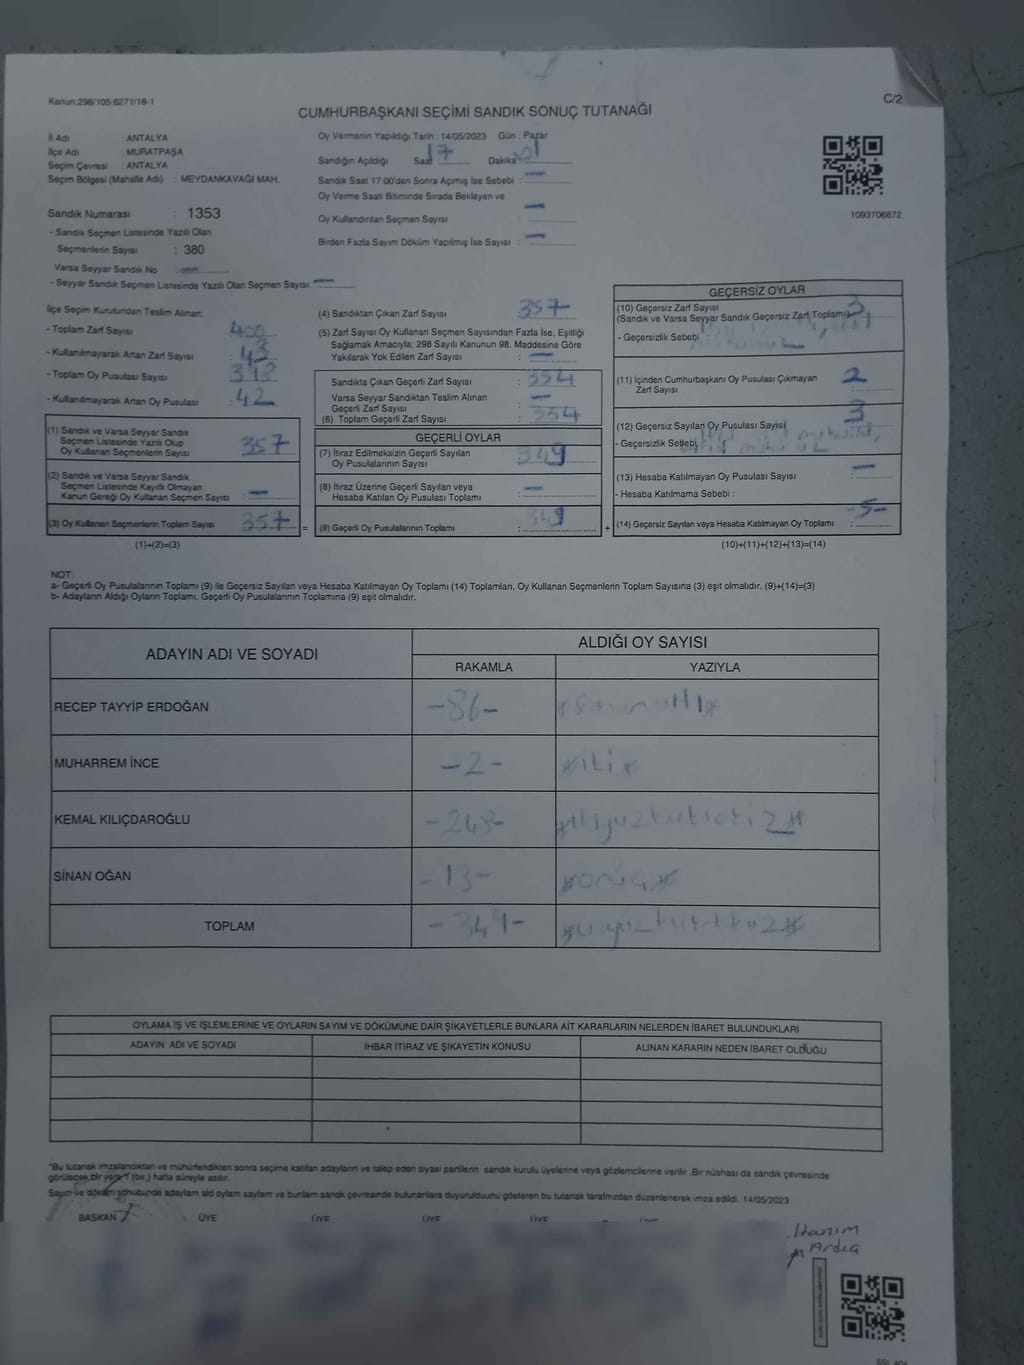 Kanun:298/105:6271/18-1
C/2
CUMHURBAŞKANI SEÇİMİ SANDIK SONUÇ TUTANAĞI
İl Adı : ANTALYA
İlçe Adı : MURATPAŞA
Seçim Çevresi : ANTALYA
Seçim Bölgesi (Mahalle Adı) : MEYDANKAVAĞI MAH.
Sandık Numarası : 1353
- Sandık Seçmen Listesinde Yazılı Olan
Seçmenlerin Sayısı : 380
Varsa Seyyar Sandık No —
- Seyyar Sandık Seçmen Listesinde Yazılı Olan Seçmen Sayısı: —
Oy Vermenin Yapıldığı Tarih : 14/05/2023 Gün : Pazar
Sandığın Açıldığı Saat 17 Dakika 01
Sandık Saat 17:00'den Sonra Açımış İse Sebebi : —
Oy Verme Saati Bitiminde Sırada Bekleyen ve
Oy Kullandırılan Seçmen Sayısı —
Birden Fazla Sayım Döküm Yapılmış İse Sayısı : —
1093706872
İlçe Seçim Kurulundan Teslim Alınan:
- Toplam Zarf Sayısı : 400
- Kullanılmayarak Artan Zarf Sayısı : 43
- Toplam Oy Pusulası Sayısı
- Kullanılmayarak Artan Oy Pusulası : 42
(1) Sandık ve Varsa Seyyar Sandık
Seçmen Listesinde Yazılı Olup
Oy Kullanan Seçmenlerin Sayısı : 357
(2) Sandık ve Varsa Seyyar Sandık
Seçmen Listesinde Kayıtlı Olmayan
Kanun Gereği Oy Kullanan Seçmen Sayısı : —
(3) Oy Kullanan Seçmenlerin Toplam Sayısı : 357
(1)+(2)=(3)
(4) Sandıktan Çıkan Zarf Sayısı : 357
(5) Zarf Sayısı Oy Kullanan Seçmen Sayısından Fazla İse, Eşitliği
Sağlamak Amacıyla; 298 Sayılı Kanunun 98. Maddesine Göre
Yakılarak Yok Edilen Zarf Sayısı : —
Sandıkta Çıkan Geçerli Zarf Sayısı : 354
Varsa Seyyar Sandıktan Teslim Alınan
Geçerli Zarf Sayısı : —
(6) Toplam Geçerli Zarf Sayısı : 354
GEÇERLİ OYLAR
(7) İtiraz Edilmeksizin Geçerli Sayılan
Oy Pusulalarının Sayısı : 349
(8) İtiraz Üzerine Geçerli Sayılan veya
Hesaba Katılan Oy Pusulası Toplamı : —
=
(9) Geçerli Oy Pusulalarının Toplamı : 349
+
GEÇERSİZ OYLAR
(10) Geçersiz Zarf Sayısı
(Sandık ve Varsa Seyyar Sandık Geçersiz Zarf Toplamı) 3
- Geçersizlik Sebebi
(11) İçinden Cumhurbaşkanı Oy Pusulası Çıkmayan
Zarf Sayısı : 2
(12) Geçersiz Sayılan Oy Pusulası Sayısı : 3
- Geçersizlik Sebebi
(13) Hesaba Katılmayan Oy Pusulası Sayısı : —
- Hesaba Katılmama Sebebi :
(14) Geçersiz Sayılan veya Hesaba Katılmayan Oy Toplamı : -5-
(10)+(11)+(12)+(13)=(14)
NOT:
a- Geçerli Oy Pusulalarının Toplamı (9) ile Geçersiz Sayılan veya Hesaba Katılmayan Oy Toplamı (14) Toplamları, Oy Kullanan Seçmenlerin Toplam Sayısına (3) eşit olmalıdır. (9)+(14)=(3)
b- Adayların Aldığı Oyların Toplamı, Geçerli Oy Pusulalarının Toplamına (9) eşit olmalıdır.
ADAYIN ADI VE SOYADI ALDIĞI OY SAYISI
RAKAMLA YAZIYLA
RECEP TAYYİP ERDOĞAN -86-
MUHARREM İNCE -2- #iki#
KEMAL KILIÇDAROĞLU -248- #ikiyüzkırksekiz#
SİNAN OĞAN -13- #onüç#
TOPLAM -349- #üçyüzkırkdokuz#
OYLAMA İŞ VE İŞLEMLERİNE VE OYLARIN SAYIM VE DÖKÜMÜNE DAİR ŞİKAYETLERLE BUNLARA AİT KARARLARIN NELERDEN İBARET BULUNDUKLARI
ADAYIN ADI VE SOYADI İHBAR İTİRAZ VE ŞİKAYETİN KONUSU ALINAN KARARIN NEDEN İBARET OLDUĞU
*Bu tutanak imzalandıktan ve mühürlendikten sonra seçime katılan adayların ve talep eden siyasi partilerin sandık kurulu üyelerine veya gözlemcilerine verilir. Bir nüshası da sandık çevresinde
görülecek bir yere 1 (bir.) hafta süreyle asılır.
Sayım ve döküm sonubunda adaylam ald oylam saylam ve bunlam sandık çevresinde bulunanlara duyurulduunu gösteren bu tutanak tarafmzdan düzenlenerek imza edildi. 14/05/2023
BAŞKAN ÜYE ÜYE ÜYE ÜYE ÜYE
Hanım
Arda